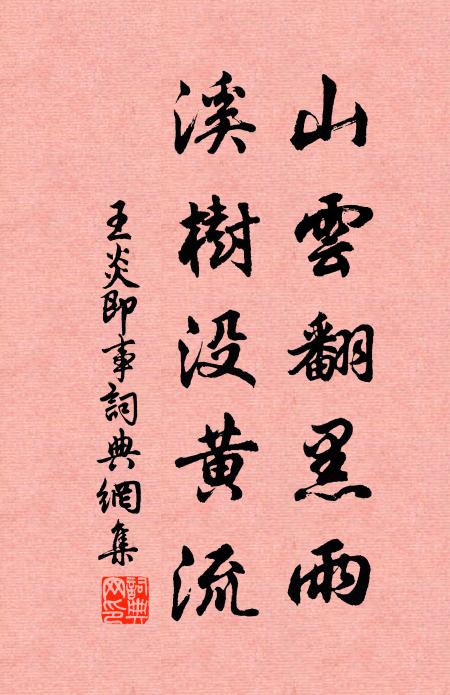 山雲翻黑雨
溪樹没黄流
王炎即事詞典網集
詞典网印